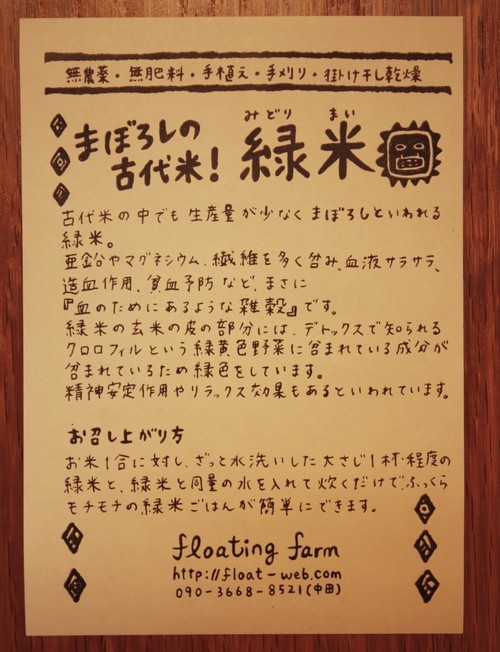 無農薬・無肥料・手植え・手メリリ・掛け干し乾燥
まぼろしの
古代米!
みどり まい
緑米
古代米の中でも生産量が少なくまぼろしといわれる
緑米。
亜鉛やマグネシウム、繊維を多く含み、血液サラサラ、
造血作用、貧血予防など、まさに
『血のためにあるような雑穀』です。
緑米の玄米の皮の部分には、デトックスで知られる
クロロフィルという緑黄色野菜に含まれている成分が
含まれているため緑色をしています。
精神安定作用やリラックス効果もあるといわれています。
お召し上がり方
お米1合に対し、ざっと水洗いした大さじ1杯程度の
緑米と、緑米と同量の水を入れて炊くだけで、ふっくら
モチモチの緑米ごはんが簡単にできます。
floating farm
http://float-web.com
090-3668-8521(中田)